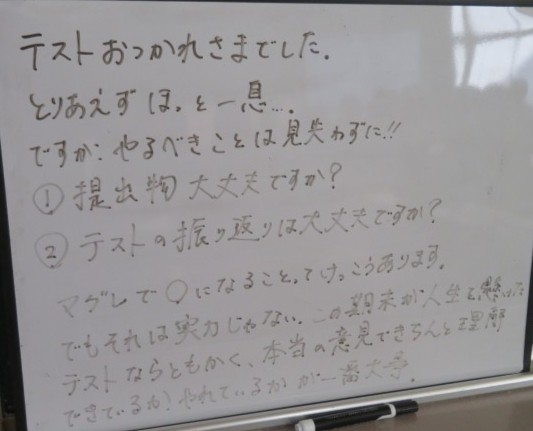 テストおつかれさまでした.
とりあえずほっと一息….
ですが:やるべきことは見失わずに!!
① 提出物大丈夫ですか?
② テストの振り返りは大丈夫ですか?
マグレで○になることってけっこうあります.
でもそれは実力じゃない.この期末が人生を懸けた
テストならともかく、本当の意見できちんと理解
できているか!やれているかが一番大事.